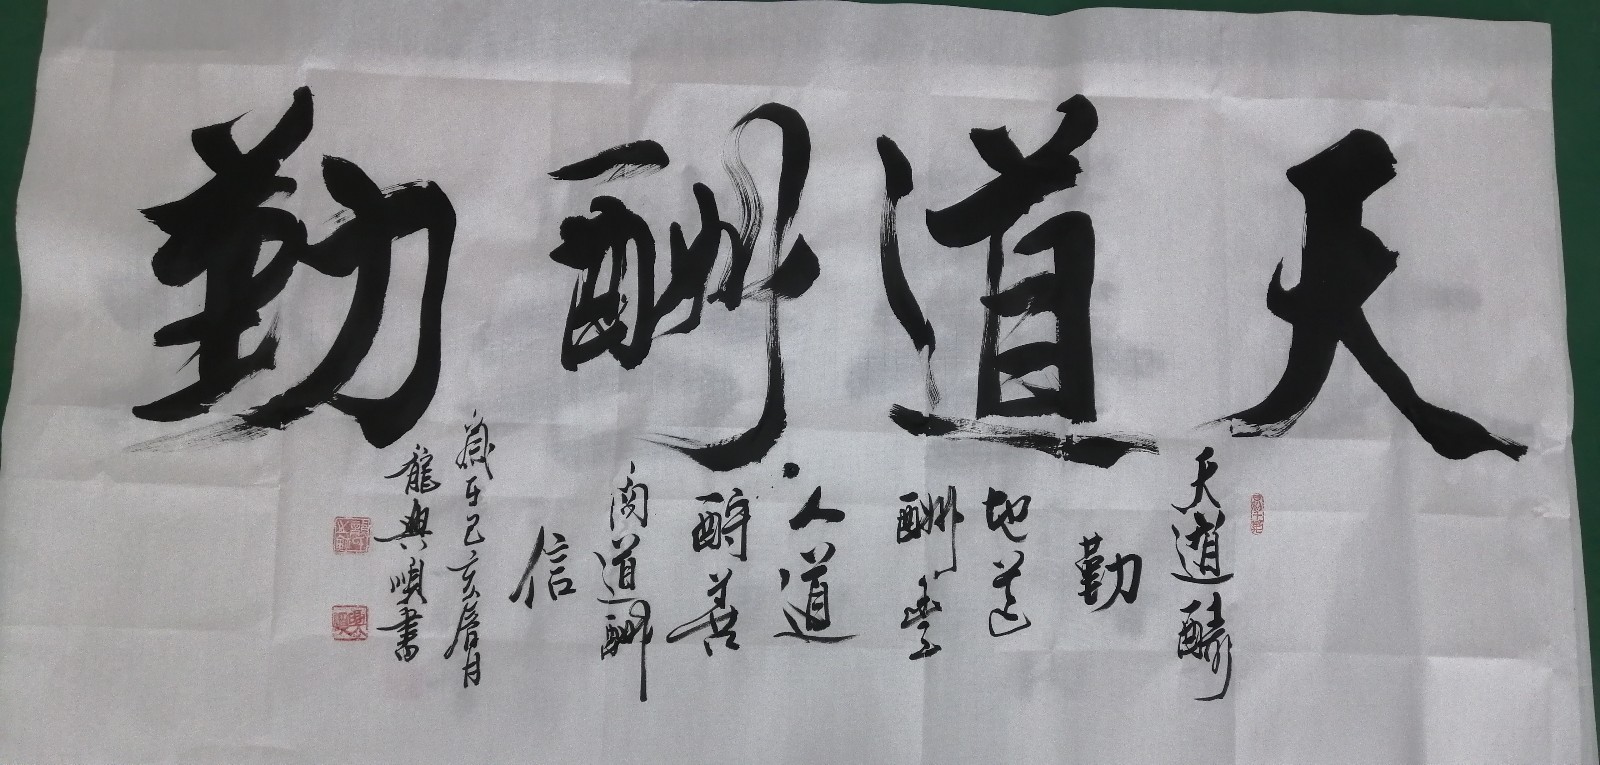 天道酬勤
天道酬
勤
地道
酬豐
人道
酬善
商道酬
信
歲在己亥
龍興順書